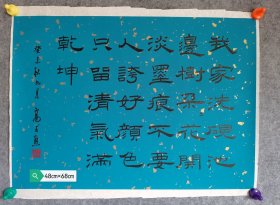 我家洗硯池
邊樹朵花開
淡墨痕不要
人誇好顏色
只留清氣滿
乾坤
48cm×68cm